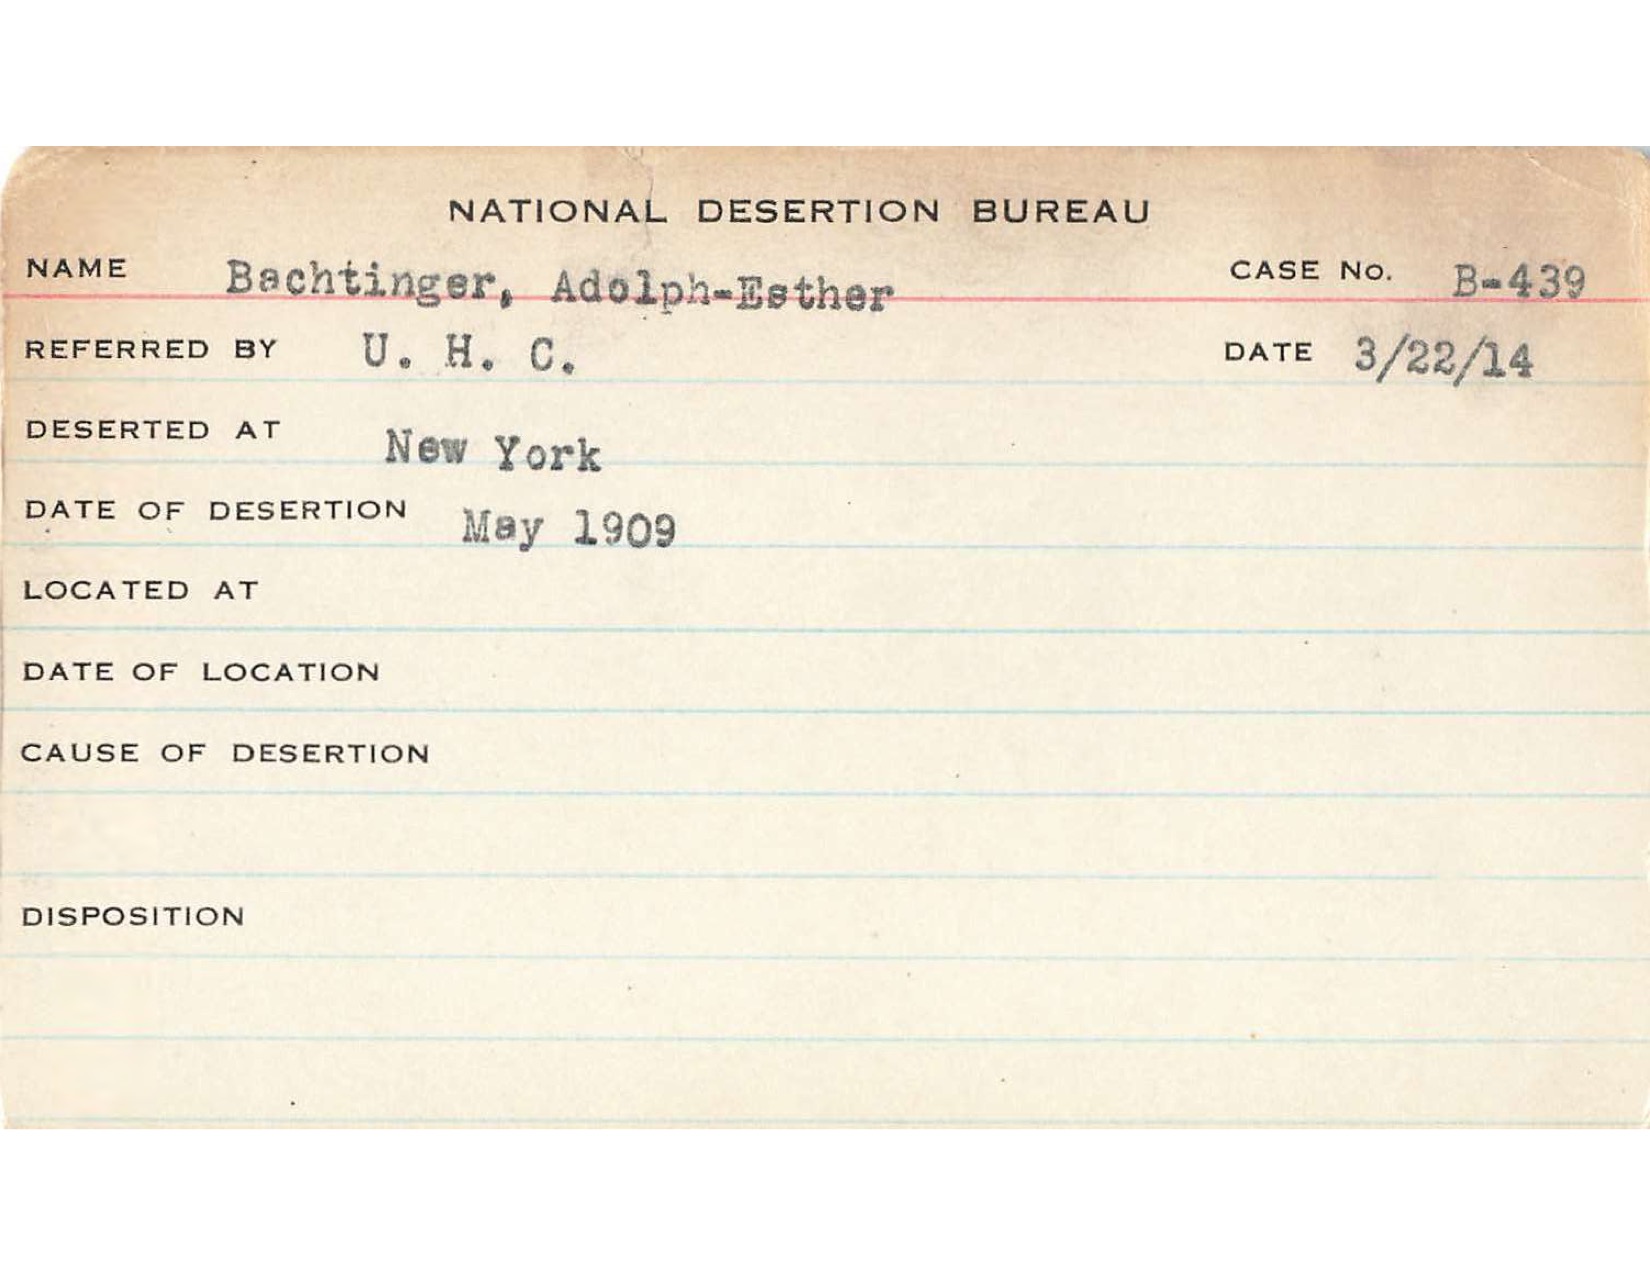 NATIONAL DESERTION BUREAU
NAME Bachtinger, Adolph-Esther CASE No. B-439
REFERRED BY U. H. C. DATE 3/22/14
DESERTED AT New York
DATE OF DESERTION May 1909
LOCATED AT
DATE OF LOCATION
CAUSE OF DESERTION
DISPOSITION